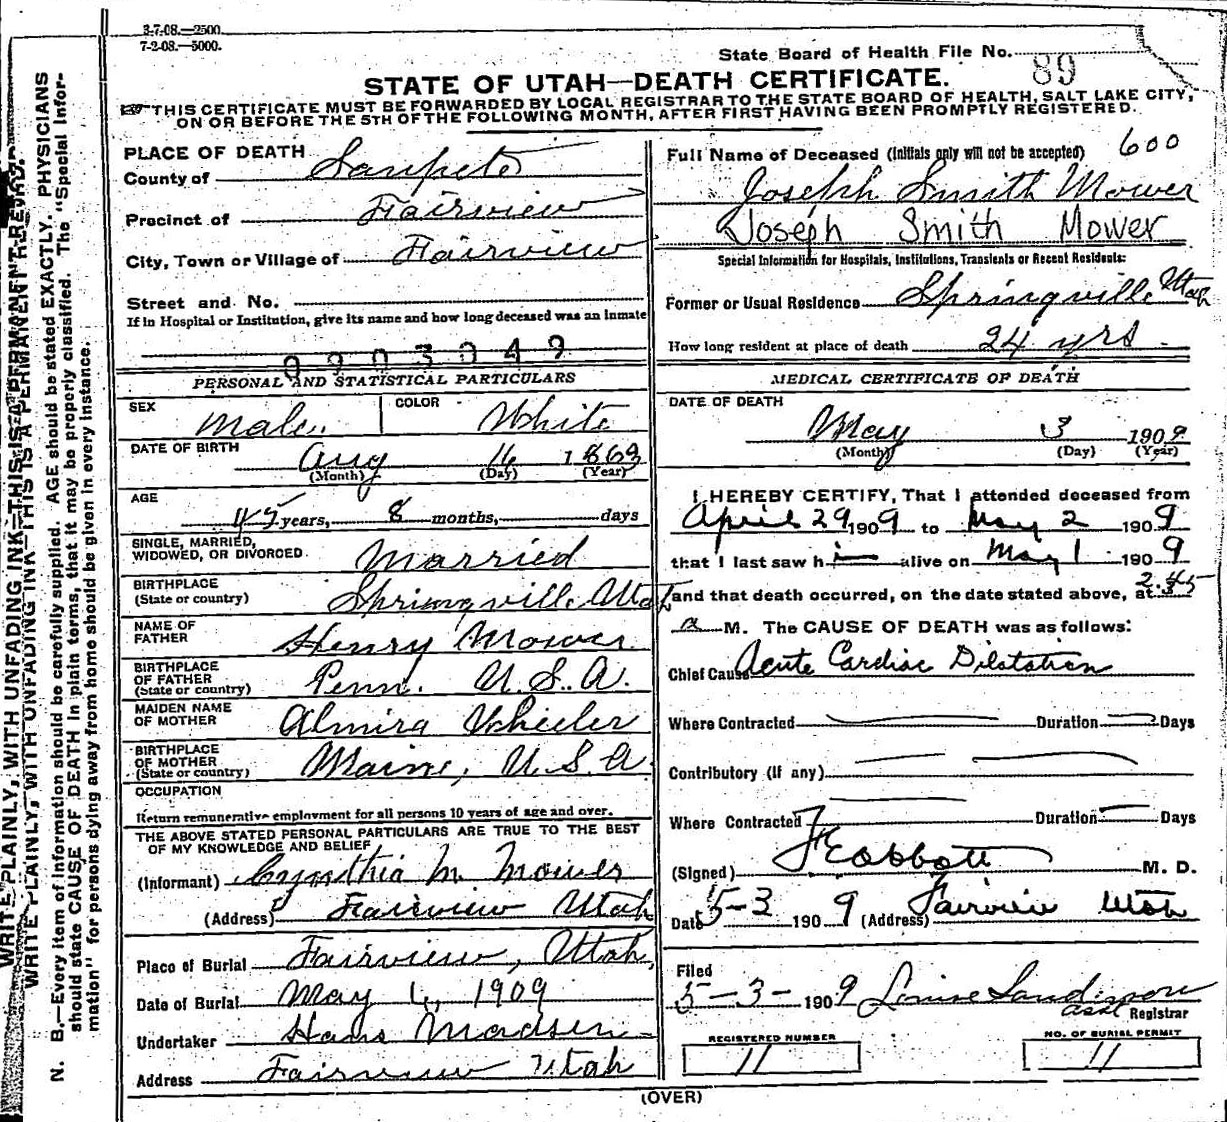 3-7-08.—2500.
7-2-08.—5000.
State Board of Health File No. 89
STATE OF UTAH—DEATH CERTIFICATE.
THIS CERTIFICATE MUST BE FORWARDED BY LOCAL REGISTRAR TO THE STATE BOARD OF HEALTH, SALT LAKE CITY,
ON OR BEFORE THE 5TH OF THE FOLLOWING MONTH, AFTER FIRST HAVING BEEN PROMPTLY REGISTERED.
WRITE PLAINLY, WITH UNFADING INK—THIS IS A PERMANENT RECORD.
WRITE PLAINLY, WITH UNFADING INK—THIS IS A PERMANENT RECORD.
N. B.—Every item of information should be carefully supplied. AGE should be stated EXACTLY. PHYSICIANS
should state CAUSE OF DEATH in plain terms, that it may be properly classified. The "Special Infor-
mation" for persons dying away from home should be given in every instance.
PLACE OF DEATH
County of Sanpete
Precinct of Fairview
City, Town or Village of Fairview
Street and No.
If in Hospital or Institution, give its name and how long deceased was an Inmate
0903049
PERSONAL AND STATISTICAL PARTICULARS
SEX Male COLOR White
DATE OF BIRTH Aug 16 1863
(Month) (Day) (Year)
AGE
45 years, 8 months, days
SINGLE, MARRIED,
WIDOWED, OR DIVORCED. Married
BIRTHPLACE
(State or country) Springville Utah
NAME OF
FATHER Henry Mower
BIRTHPLACE
OF FATHER
(State or country) Penn. U.S.A.
MAIDEN NAME
OF MOTHER Almira Wheeler
BIRTHPLACE
OF MOTHER
(State or country) Maine, U.S.A.
OCCUPATION
Return remunerative employment for all persons 10 years of age and over.
THE ABOVE STATED PERSONAL PARTICULARS ARE TRUE TO THE BEST
OF MY KNOWLEDGE AND BELIEF
(Informant) Cynthia M. Mower
(Address) Fairview Utah
Place of Burial Fairview, Utah,
Date of Burial May 6, 1909
Undertaker Hans Madsen
Address Fairview Utah
Full Name of Deceased (Initials only will not be accepted) 600
Joseph Smith Mower
Joseph Smith Mower
Special Information for Hospitals, Institutions, Transients or Recent Residents:
Former or Usual Residence Springville Utah
How long resident at place of death 24 yrs.
MEDICAL CERTIFICATE OF DEATH
DATE OF DEATH
May 3 1909
(Month) (Day) (Year)
I HEREBY CERTIFY, That I attended deceased from
April 29 1909 to May 2 1909
that I last saw him alive on May 1 1909
and that death occurred, on the date stated above, at 2.45
a M. The CAUSE OF DEATH was as follows:
Chief Cause Acute Cardiac Dilatation
Where Contracted Duration Days
Contributory (If any)
Where Contracted Duration Days
(Signed) M. D.
Date 5-3 1909 (Address) Fairview Utah
Filed
5-3- 1909 Louise Sanderson
asst Registrar
REGISTERED NUMBER NO. OF BURIAL PERMIT
11 11
(OVER)